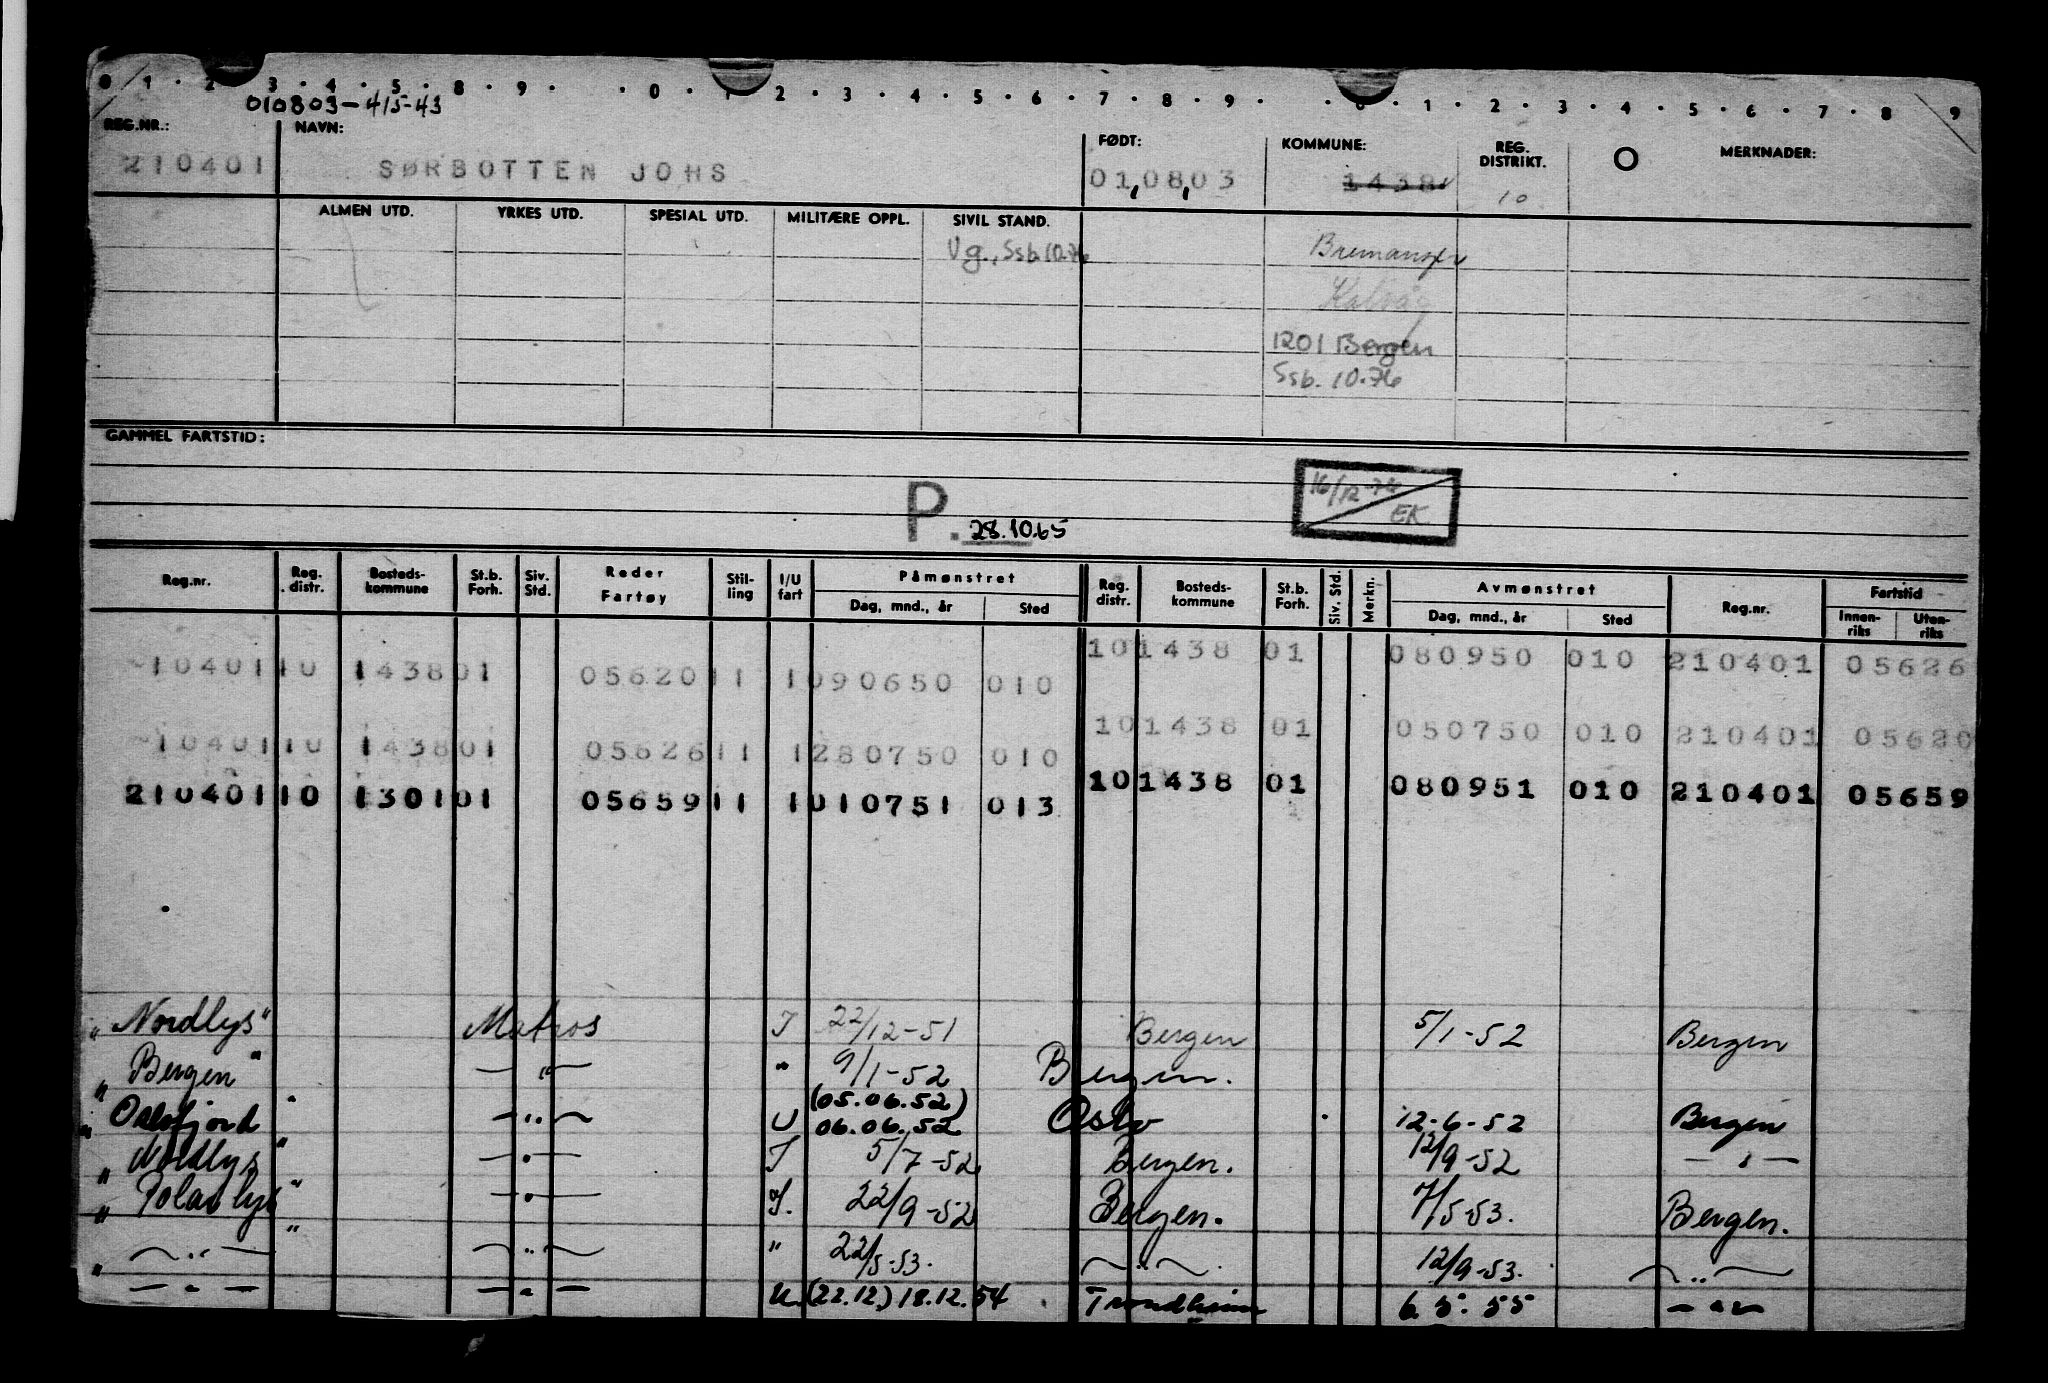 0 1 · 2 · 3 · 4 · 5 · 8 · 9 · · 0 · 1 2 · 3 · 4 · 5 · 6 · 7 · 8 · 9 · · 0 · 1 · 2 · 3 · 4 · 5 · 6 · 7 · 8 9
010803-415-43
REG.NR.: NAVN: FØDT: KOMMUNE: REG. DISTRIKT. O MERKNADER:
210401 SØRBOTTEN JOHS 01,08,03 1438 10
ALMEN UTD. YRKES UTD. SPESIAL UTD. MILITÆRE OPPL. SIVIL STAND.
Vg., Ssb. 10.76 Bremanger
Kalvåg
1201 Bergen
Ssb. 10.76
GAMMEL FARTSTID:
P. 28.10.65 16/12-76 EK
Reg.nr. Reg. distr. Bosteds-kommune St.b. Forh. Siv. Std. Reder Fartøy Stil-ling I/U fart Påmønstret Dag, mnd., år Sted Reg. distr. Bosteds-kommune St.b. Forh. Siv. Std. Merkn. Avmønstret Dag, mnd., år Sted Reg.nr. Fartstid Innen-riks Uten-riks
1040110 143801 0562011 1090650 010 101438 01 080950 010 210401 05626
1040110 143801 0562611 1280750 010 101438 01 050750 010 210401 05620
21040110 130101 0565911 1010751 013 101438 01 080951 010 210401 05659
"Nordlys" Matros I 22/12-51 Bergen 5/1-52 Bergen
"Bergen" — " — " 9/1-52 Bergen.
"Oslofjord" — " — U (05.06.52) 06.06.52 Oslo 12-6-52 Bergen
"Nordlys" — " — I 5/7-52 Bergen. 12/9-52 — " —
"Polarlys" — " — I. 22/9-52 Bergen. 7/5-53. Bergen.
" — " — " — " — " 22/5-53. — " — 12/9-53. — " —
— " — — " — U. (22.12) 18.12.54 Trondheim 6.5.55 — " —